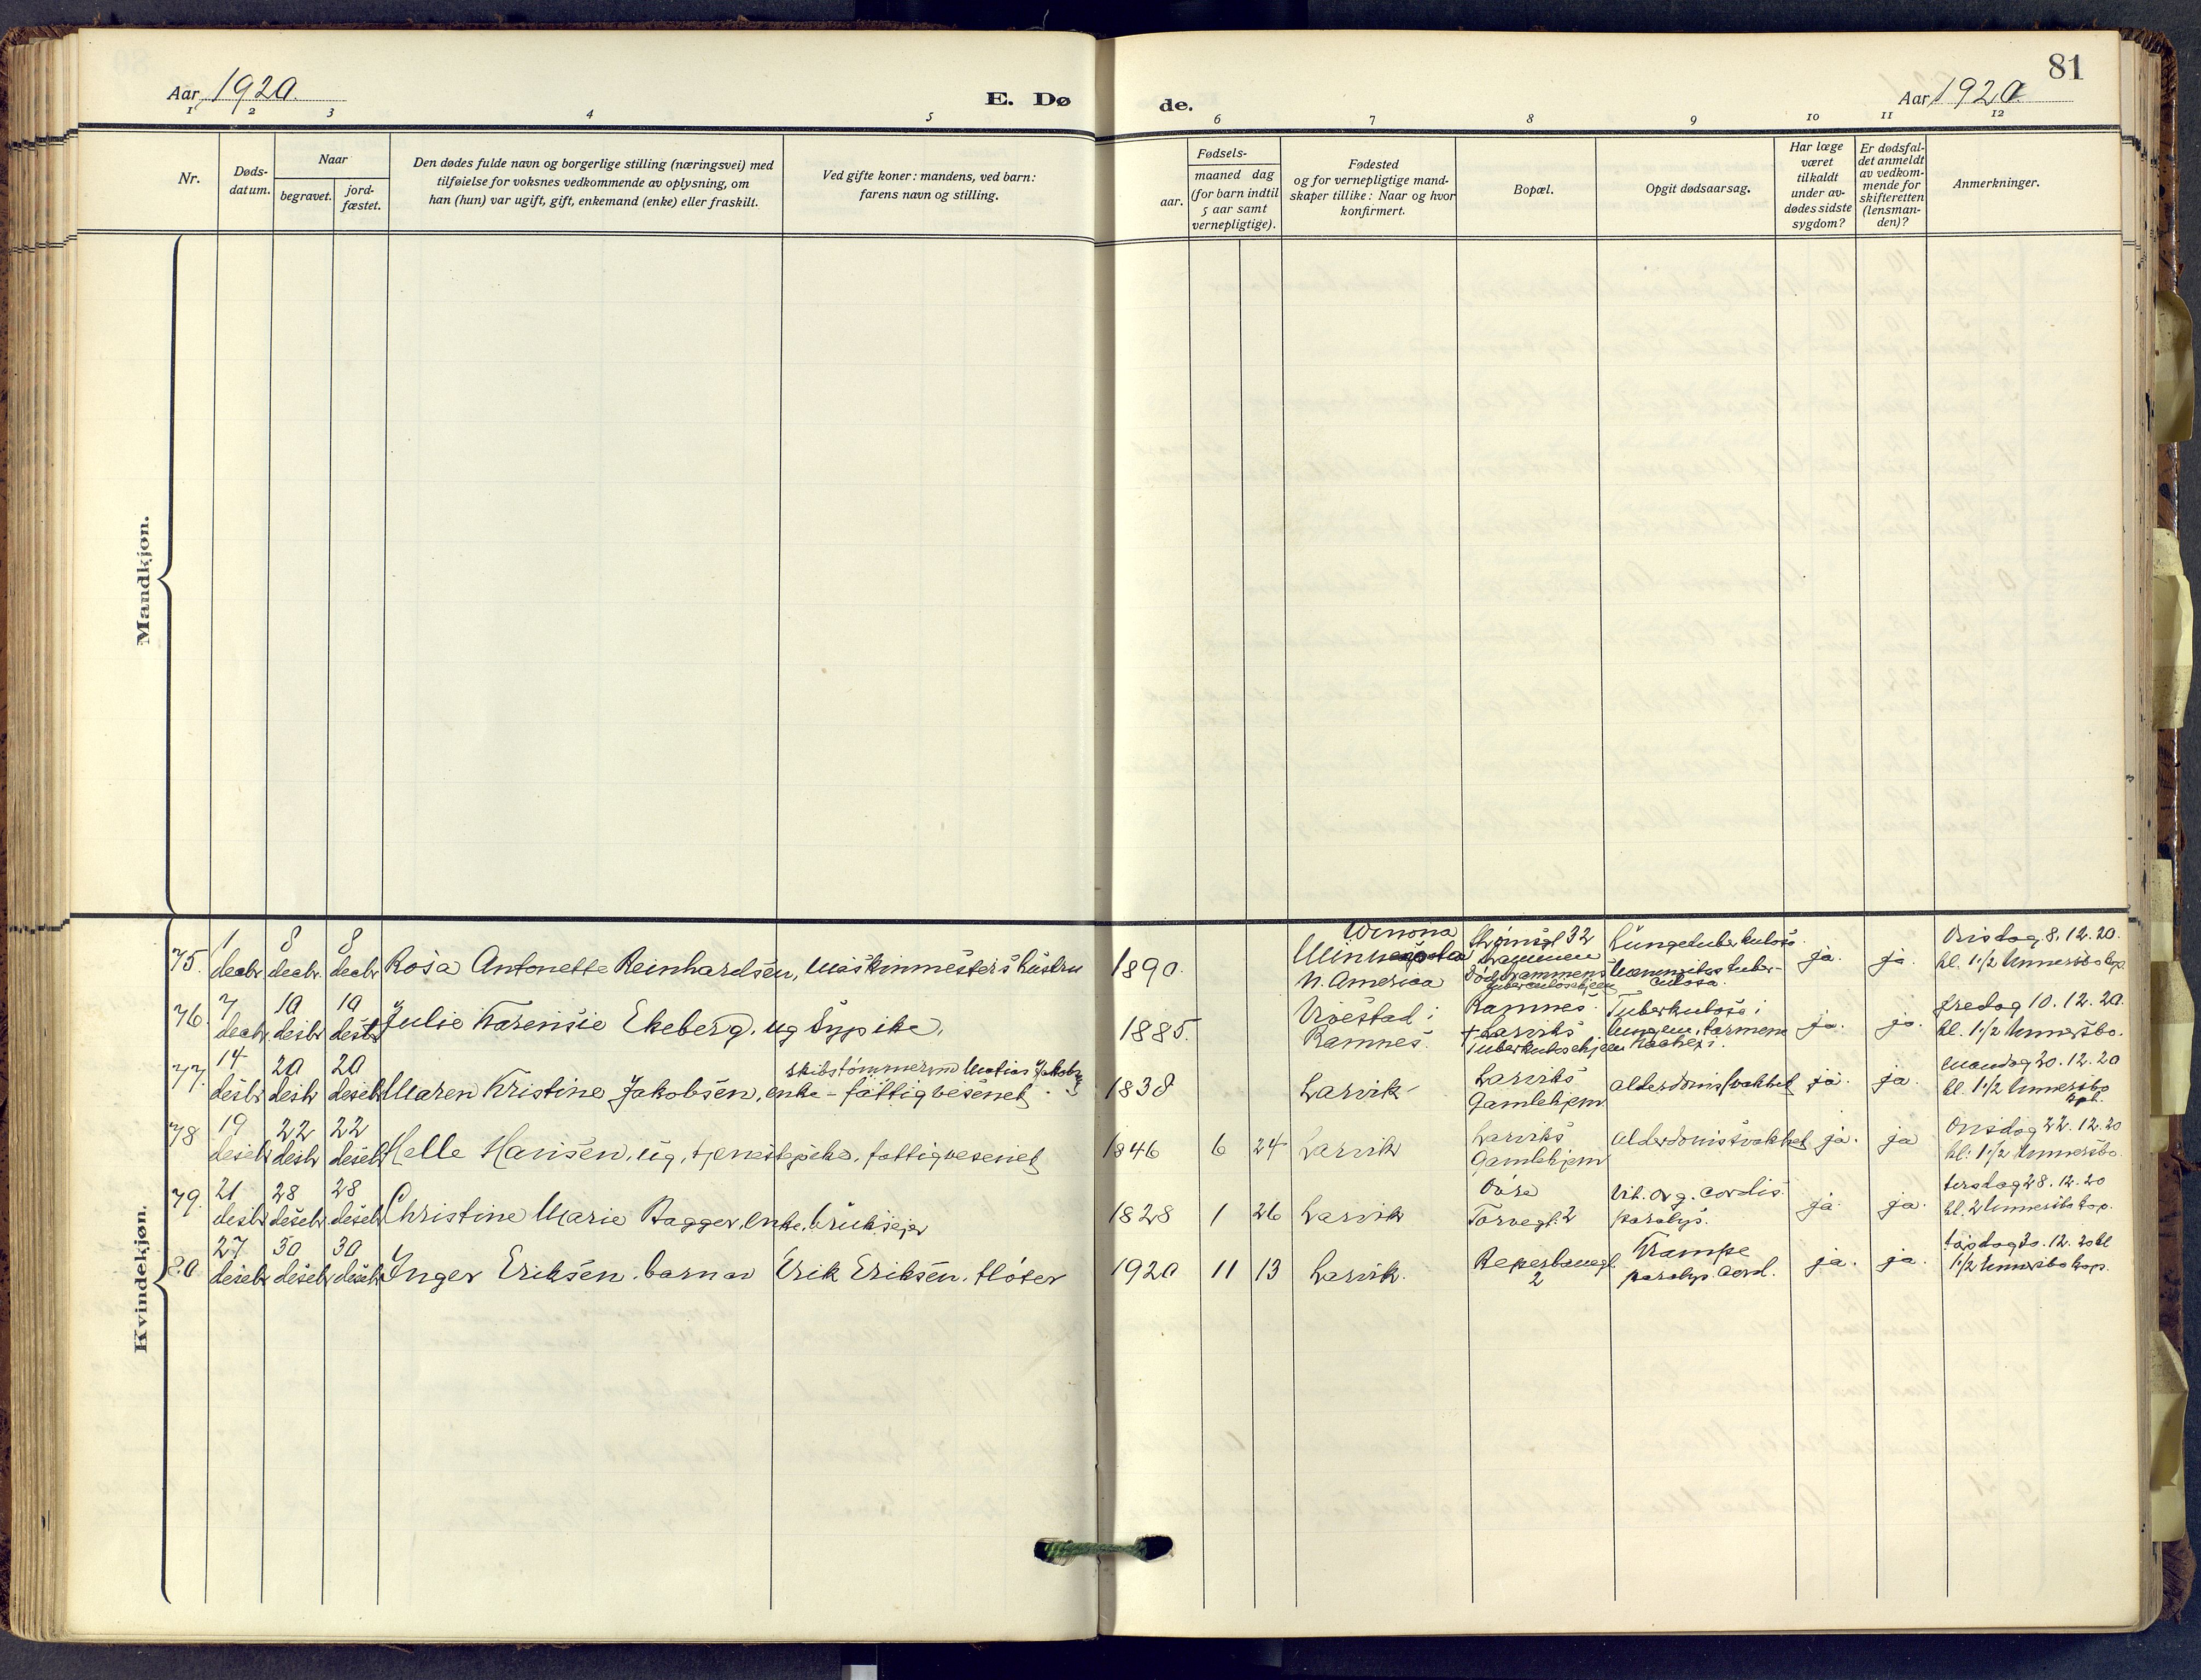 81
Aar 1920.
E. Dø
de.
Aar 1920
1 2 3 4 5 6 7 8 9 10 11 12
Nr.
Døds-
datum.
Naar
begravet.
jord-
fæstet.
Den dødes fulde navn og borgerlige stilling (næringsvei) med
tilføielse for voksnes vedkommende av oplysning, om
han (hun) var ugift, gift, enkemand (enke) eller fraskilt.
Ved gifte koner: mandens, ved barn:
farens navn og stilling.
aar.
Fødsels-
maaned dag
(for barn indtil
5 aar samt
vernepligtige).
Fødested
og for vernepligtige mand-
skaper tillike: Naar og hvor
konfirmert.
Bopæl.
Opgit dødsaarsag.
Har læge
været
tilkaldt
under av-
dødes sidste
sygdom?
Er dødsfal-
det anmeldt
av vedkom-
mende for
skifteretten
(lensman-
den)?
Anmerkninger.
Mandkjøn.
Kvindekjøn.
75.
1
decbr
8
decbr.
8
decbr
Rosa Antonette Reinhardsen, maskinmesters hustru
1890.
Winona
N. America
32
Drammen
Død Drammens
tuberculosehjem
Lungetuberkulose
ja.
ja.
Onsdag 8.12.20.
kl. 1 1/2
76.
7
decbr.
10
desbr
10
desbr
Julie Karensie Ekeberg, ug Sypike.
1885.
Vivestad i
Ramnes.
Ramnes.
+ Larviks
Tuberkulosehjem
Tuberkulose i
ja.
ja.
fredag 10.12.20.
kl. 1 1/2
77.
14
desbr
20
desbr
20
desebr
Maren Kristine Jakobsen, enke - fattigvesenet
skibstømmerm Matias Jakobs
1838
Larvik
Larviks
Gamlehjem
alderdomssvakhet
ja.
ja.
mandag 20.12.20
kl. 1 1/2
78
19
desebr
22
desbr
22
desebr
Helle Hansen, ug, tjenestepike, fattigvesenet
1846
6
24
Larvik
Larviks
Gamlehjem
alderdomssvakhet
ja.
ja
Onsdag 22.12.20
kl. 1 1/2
79.
21
desbr
28
desebr
28
desebr
Christine Marie Bagger, enke, brukseier
1828
1
26
Larvik
Øvre
Torvegt. 2
Vit. org. cordis.
paralys.
ja
ja.
tirsdag 28.12.20
kl. 2
80
27
desebr
30
desebr
30
desebr
Inger Eriksen, barn av Erik Eriksen, fløter
1920
11
13
Larvik.
Reperbanegt.
2
Krampe
paralys. Cord.
ja.
ja.
torsdag 30.12.20 kl
1 1/2